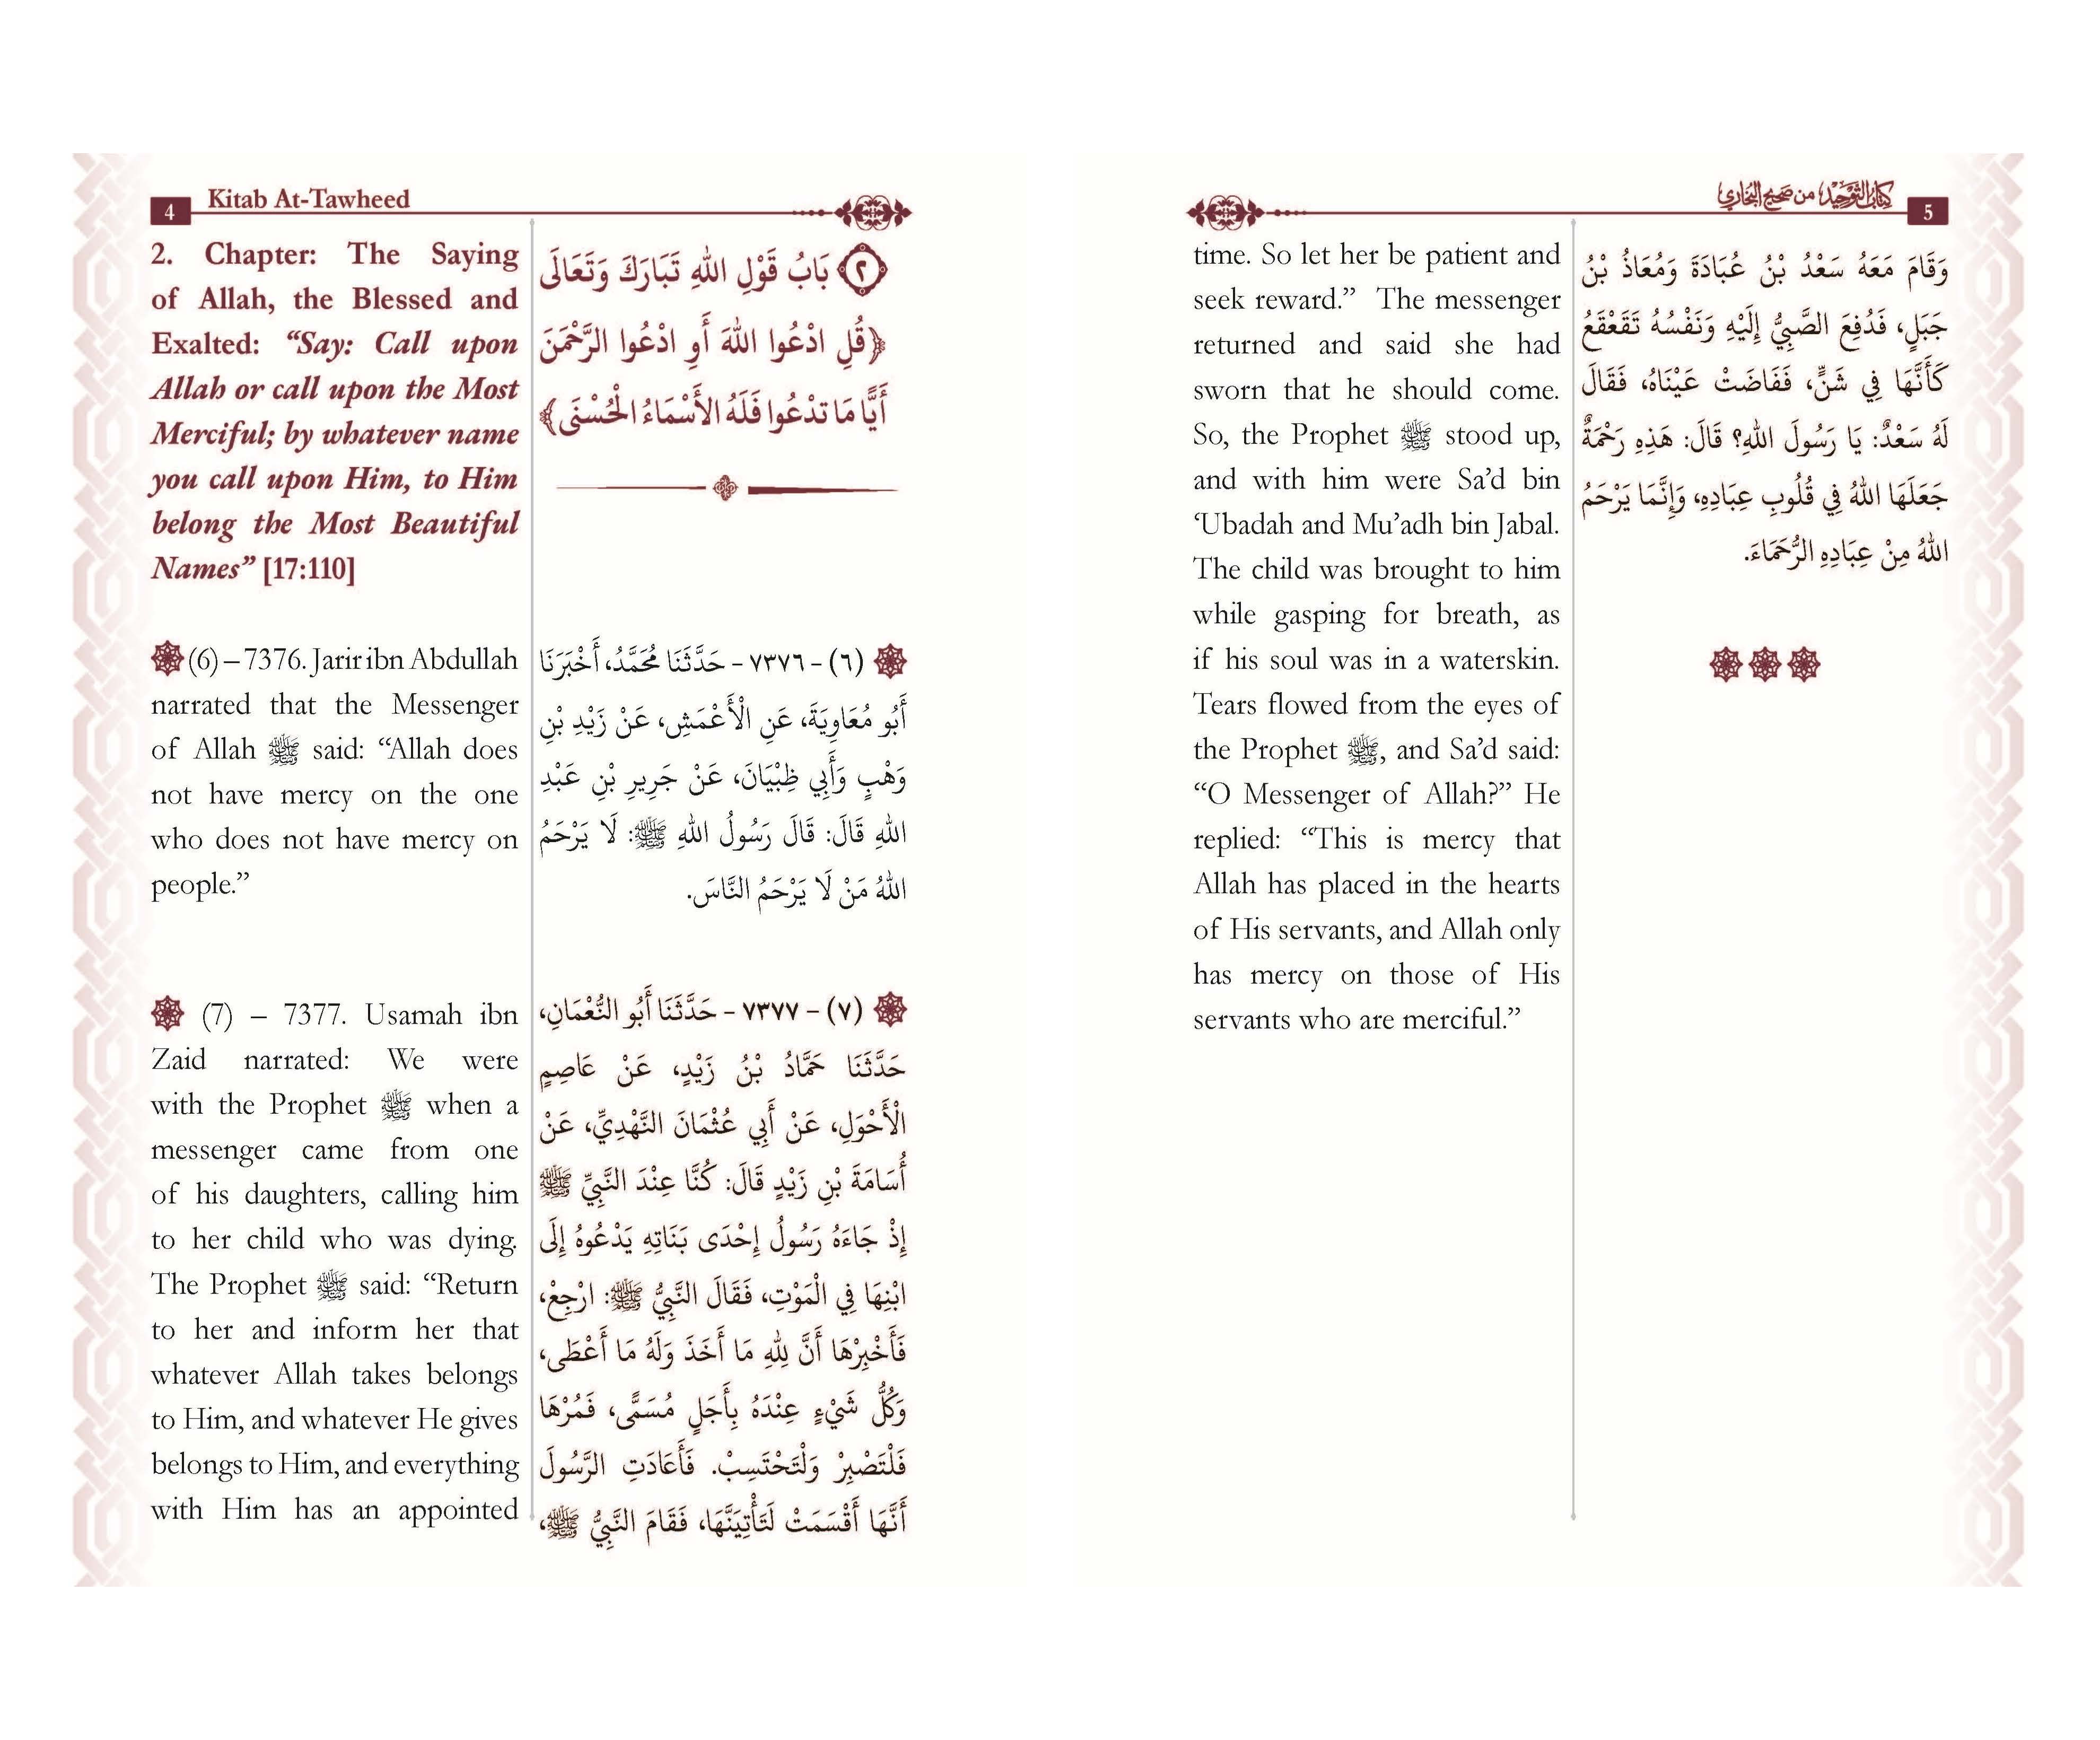 4 Kitab At-Tawheed
2. Chapter: The Saying
of Allah, the Blessed and
Exalted: “Say: Call upon
Allah or call upon the Most
Merciful; by whatever name
you call upon Him, to Him
belong the Most Beautiful
Names” [17:110]
(6) – 7376. Jarir ibn Abdullah
narrated that the Messenger
of Allah ﷺ said: “Allah does
not have mercy on the one
who does not have mercy on
people.”
(7) – 7377. Usamah ibn
Zaid narrated: We were
with the Prophet ﷺ when a
messenger came from one
of his daughters, calling him
to her child who was dying.
The Prophet ﷺ said: “Return
to her and inform her that
whatever Allah takes belongs
to Him, and whatever He gives
belongs to Him, and everything
with Him has an appointed
٢ بَابُ قَوْلِ اللهِ تَبَارَكَ وَتَعَالَى
﴿قُلِ ادْعُوا اللهَ أَوِ ادْعُوا الرَّحْمَنَ
أَيًّا مَا تَدْعُوا فَلَهُ الأَسْمَاءُ الْحُسْنَى﴾
(٦) - ٧٣٧٦ - حَدَّثَنَا مُحَمَّدُ، أَخْبَرَنَا
أَبُو مُعَاوِيَةَ، عَنِ الْأَعْمَشِ، عَنْ زَيْدِ بْنِ
وَهْبٍ وَأَبِي ظِبْيَانَ، عَنْ جَرِيرِ بْنِ عَبْدِ
اللهِ قَالَ: قَالَ رَسُولُ اللهِ ﷺ: لَا يَرْحَمُ
اللهُ مَنْ لَا يَرْحَمُ النَّاسَ.
(٧) - ٧٣٧٧ - حَدَّثَنَا أَبُو النُّعْمَانِ،
حَدَّثَنَا حَمَّادُ بْنُ زَيْدٍ، عَنْ عَاصِمٍ
الْأَحْوَلِ، عَنْ أَبِي عُثْمَانَ النَّهْدِيِّ، عَنْ
أُسَامَةَ بْنِ زَيْدٍ قَالَ: كُنَّا عِنْدَ النَّبِيِّ ﷺ
إِذْ جَاءَهُ رَسُولُ إِحْدَى بَنَاتِهِ يَدْعُوهُ إِلَى
ابْنِهَا فِي الْمَوْتِ، فَقَالَ النَّبِيُّ ﷺ: ارْجِعْ،
فَأَخْبِرْهَا أَنَّ لِلّٰهِ مَا أَخَذَ وَلَهُ مَا أَعْطَى،
وَكُلُّ شَيْءٍ عِنْدَهُ بِأَجَلٍ مُسَمًّى، فَمُرْهَا
فَلْتَصْبِرْ وَلْتَحْتَسِبْ. فَأَعَادَتِ الرَّسُولَ
أَنَّهَا أَقْسَمَتْ لَتَأْتِيَنَّهَا، فَقَامَ النَّبِيُّ ﷺ،
كِتَابُ التَّوْحِيْدِ من صَحِيحِ البُخَارِي 5
time. So let her be patient and
seek reward.” The messenger
returned and said she had
sworn that he should come.
So, the Prophet ﷺ stood up,
and with him were Sa’d bin
‘Ubadah and Mu’adh bin Jabal.
The child was brought to him
while gasping for breath, as
if his soul was in a waterskin.
Tears flowed from the eyes of
the Prophet ﷺ, and Sa’d said:
“O Messenger of Allah?” He
replied: “This is mercy that
Allah has placed in the hearts
of His servants, and Allah only
has mercy on those of His
servants who are merciful.”
وَقَامَ مَعَهُ سَعْدُ بْنُ عُبَادَةَ وَمُعَاذُ بْنُ
جَبَلٍ، فَدُفِعَ الصَّبِيُّ إِلَيْهِ وَنَفْسُهُ تَقَعْقَعُ
كَأَنَّهَا فِي شَنٍّ، فَفَاضَتْ عَيْنَاهُ، فَقَالَ
لَهُ سَعْدٌ: يَا رَسُولَ اللهِ؟ قَالَ: هَذِهِ رَحْمَةٌ
جَعَلَهَا اللهُ فِي قُلُوبِ عِبَادِهِ، وَإِنَّمَا يَرْحَمُ
اللهُ مِنْ عِبَادِهِ الرُّحَمَاءَ.